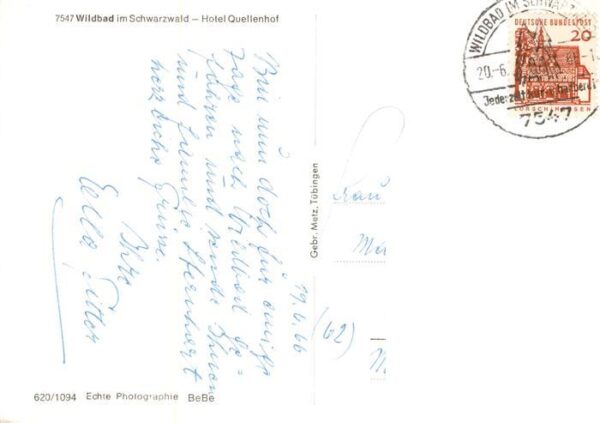 7547 Wildbad im Schwarzwald – Hotel Quellenhof
19.6.66
Bin nun doch für einige
Tage nach Wildbad ge=
fahren und sende Ihnen
und Familie
herzliche Grüsse.
Ihre
Gebr. Metz, Tübingen
(62)
620/1094 Echte Photographie BeBe
WILDBAD IM SCHWARZ
20.-6.
7547
DEUTSCHE BUNDESPOST
20
LORSCH/HESSEN